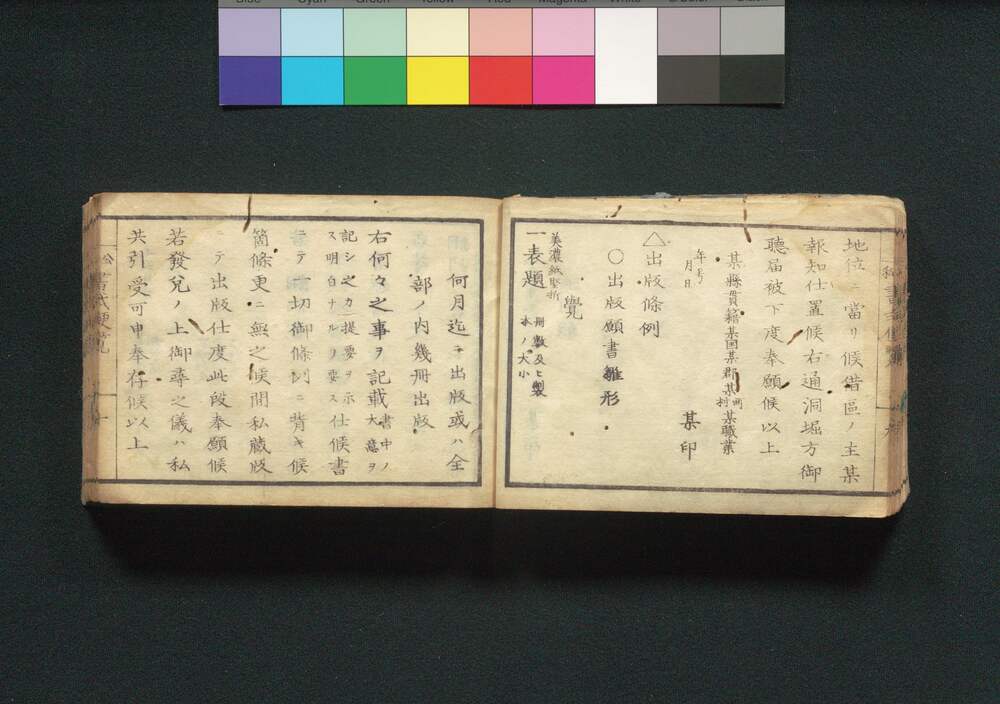 Blue Cyan Green Yellow Red Magenta White Black
地位ニ當リ候借區ノ主某
報知仕置候右通洞堀方御
聽届被下度奉願候以上
某縣貫籍某国某郡某町村某職業
年号月日
某印
△出版條例
○出版願書雛形
覺
美濃紙竪折
一表題 冊數及ヒ製本ノ大小
何月迄ニ出版或ハ全
部ノ内幾冊出版
右何々之事ヲ記載 書中ノ大意ヲ
記シ之カ提要ヲ示ス明白ナルノ要ス 仕候書
ニテ一切御條例ニ背キ候
箇條更ニ無之候間私藏版
ニテ出版仕度此段奉願候
若發兌ノ上御尋之儀ハ私
共引受可申奉存候以上
公書式便覧